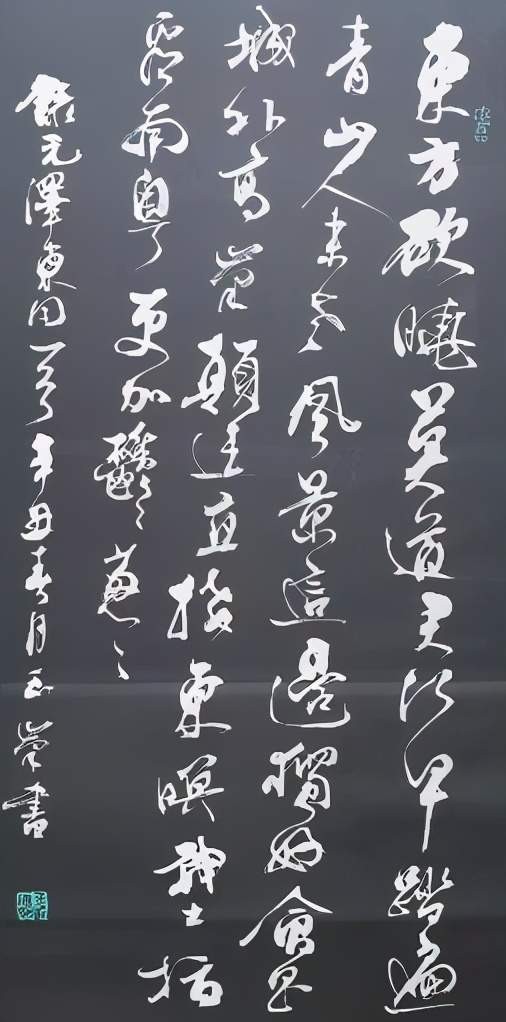 東方欲曉莫道君行早踏遍
青山人未老風景這邊獨好會昌
城外高峯顛連直接東暝戰士指
看南粵更加鬱々葱々
錄毛澤東詞一首辛丑春月玉峯書